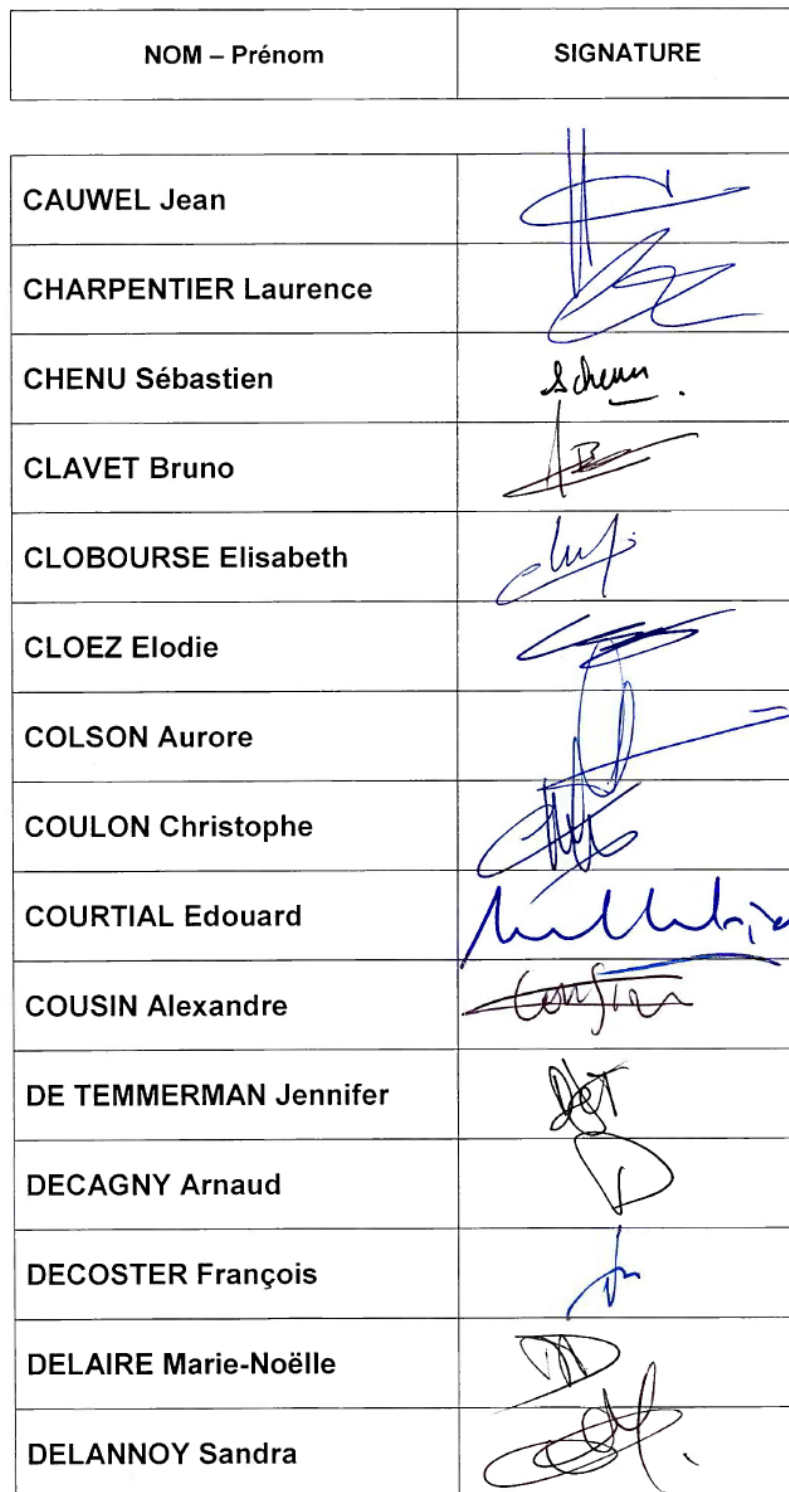 NOM – Prénom SIGNATURE
CAUWEL Jean
CHARPENTIER Laurence
CHENU Sébastien
CLAVET Bruno
CLOBOURSE Elisabeth
CLOEZ Elodie
COLSON Aurore
COULON Christophe
COURTIAL Edouard
COUSIN Alexandre
DE TEMMERMAN Jennifer
DECAGNY Arnaud
DECOSTER François
DELAIRE Marie-Noëlle
DELANNOY Sandra